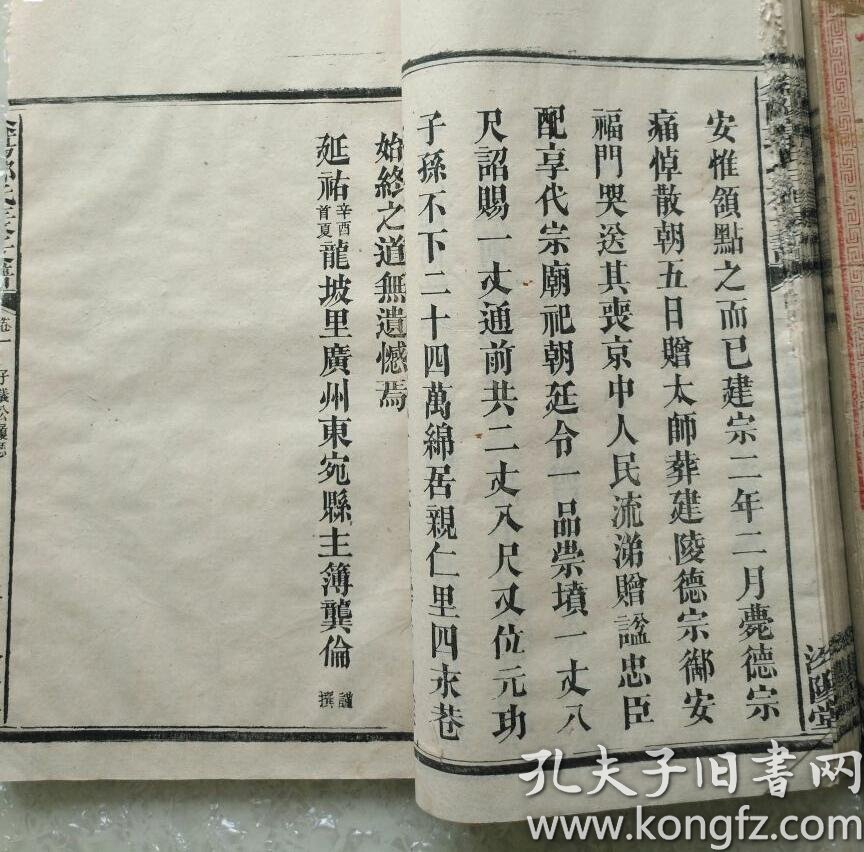 安惟頷點之而已建宗二年二月薨德宗
痛悼散朝五日贈太師葬建陵德宗御安
福門哭送其喪京中人民流涕贈諡忠臣
配享代宗廟祀朝廷令一品崇墳一丈八
尺詔賜一丈通前共二丈八尺又位元功
子孫不下二十四萬綿居親仁里四永巷
汾陽堂
始終之道無遺憾焉
延祐辛酉首夏龍坡里廣州東宛縣主簿龔倫謹撰
卷一
孔夫子旧书网
www.kongfz.com